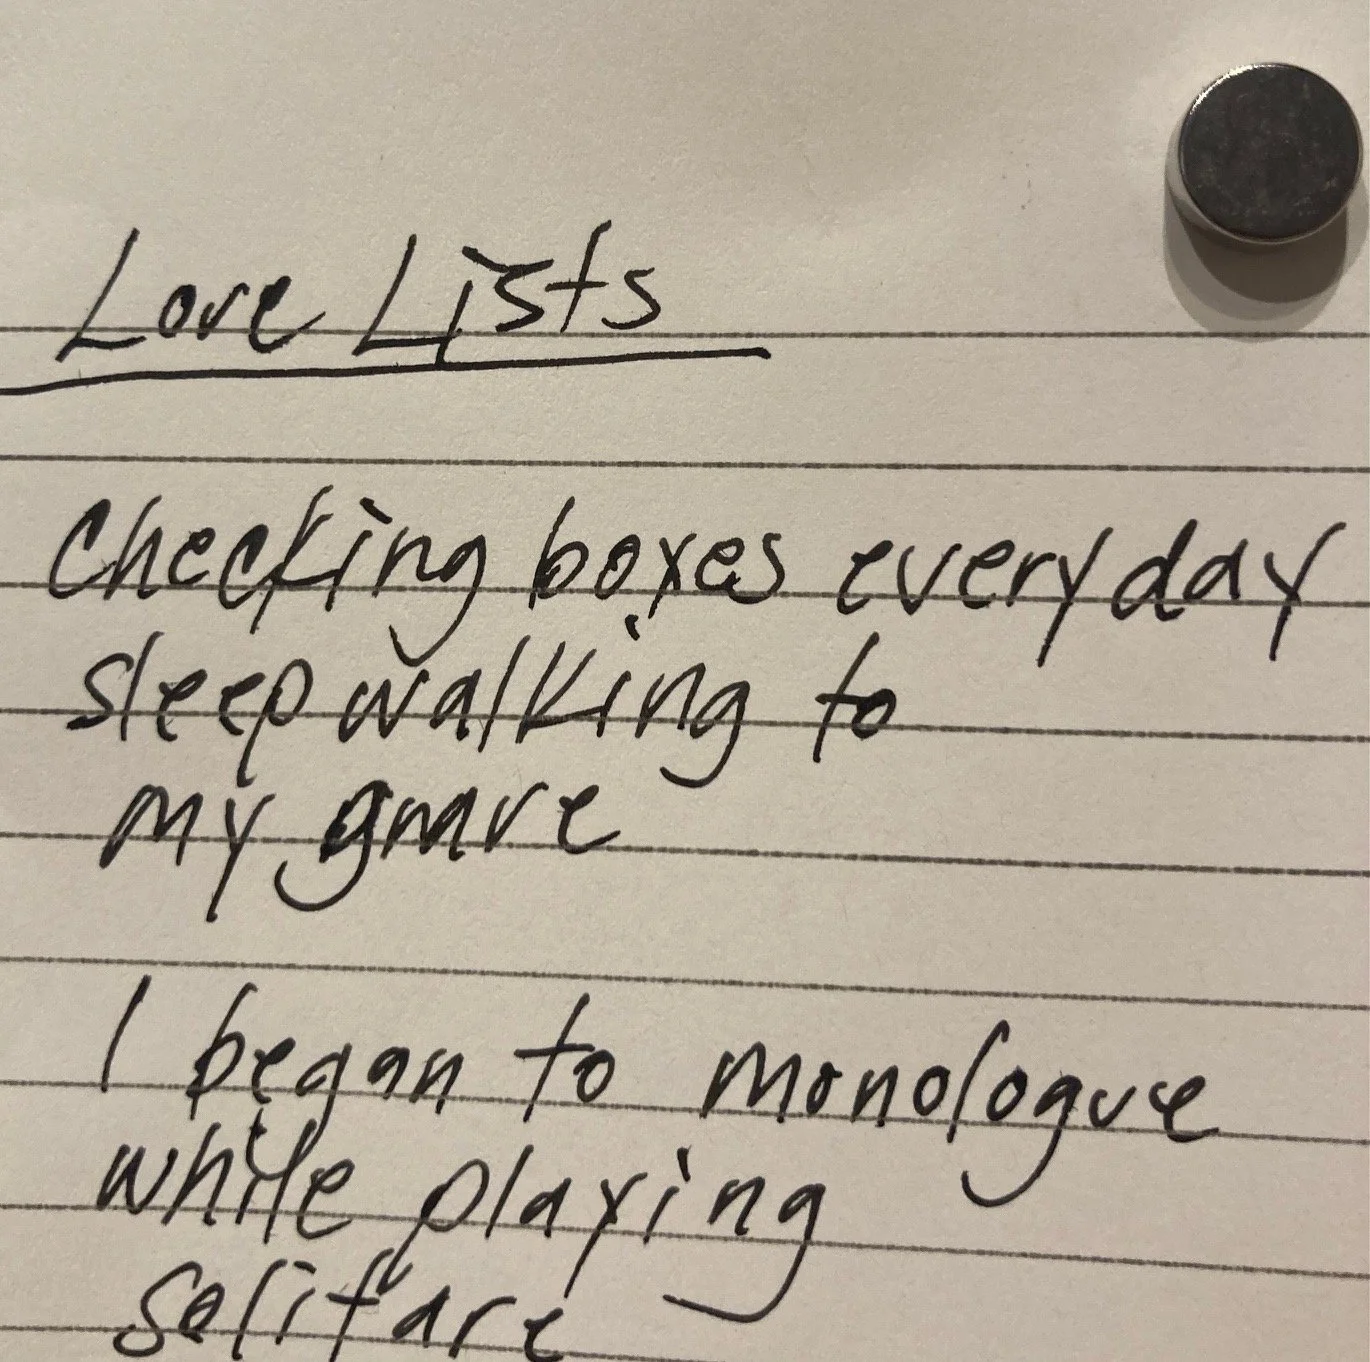 Love Lists
Checking boxes everyday
sleepwalking to
my grave
I began to monologue
while playing
solitare